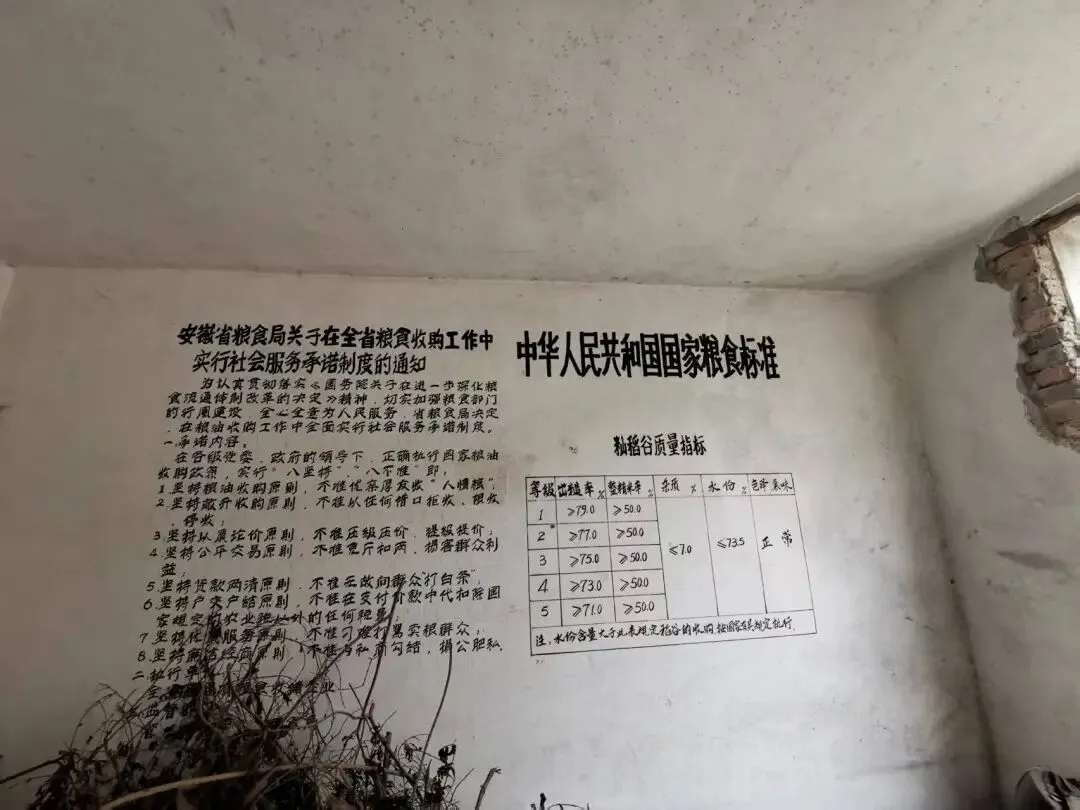 安徽省粮食局关于在全省粮食收购工作中
实行社会服务承诺制度的通知
为认真贯彻落实《国务院关于在进一步深化粮
食流通体制改革的决定》精神，切实加强粮食部门
的行风建设，全心全意为人民服务，省粮食局决定
，在粮油收购工作中全面实行社会服务承诺制度。
一.承诺内容。
在各级党委、政府的领导下，正确执行国家粮油
收购政策，实行"八坚持"、"八不准"即：
1.坚持粮油收购原则，不准优亲厚友收"人情粮"；
2.坚持敞开收购原则，不准以任何借口拒收、限收
、停收；
3.坚持以质论价原则，不准压级压价、提级提价；
4.坚持公平交易原则，不准克斤扣两、损害群众利
益；
5.坚持货款两清原则，不准无故向群众"打白条"；
6.坚持户交户结原则，不准在支付价款中代扣除国
家规定的农业税以外的任何税费；
7.坚持优质服务原则，不准刁难打骂卖粮群众；
8.坚持廉洁经商原则，不准与私商勾结，损公肥私
二.执行单位
企业
中华人民共和国国家粮食标准
籼稻谷质量指标
等级 出糙率% 整精米率% 杂质% 水份% 色泽气味
1 ≥79.0 ≥50.0
2 ≥77.0 ≥50.0
3 ≥75.0 ≥50.0 ≤7.0 ≤73.5 正常
4 ≥73.0 ≥50.0
5 ≥71.0 ≥50.0
注：水份含量大于此表规定稻谷的收购，按国家有关规定执行.